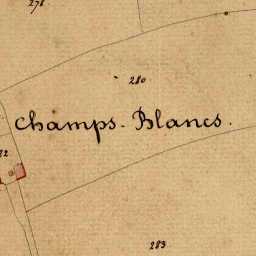 278
280
champs. Blancs.
22
283